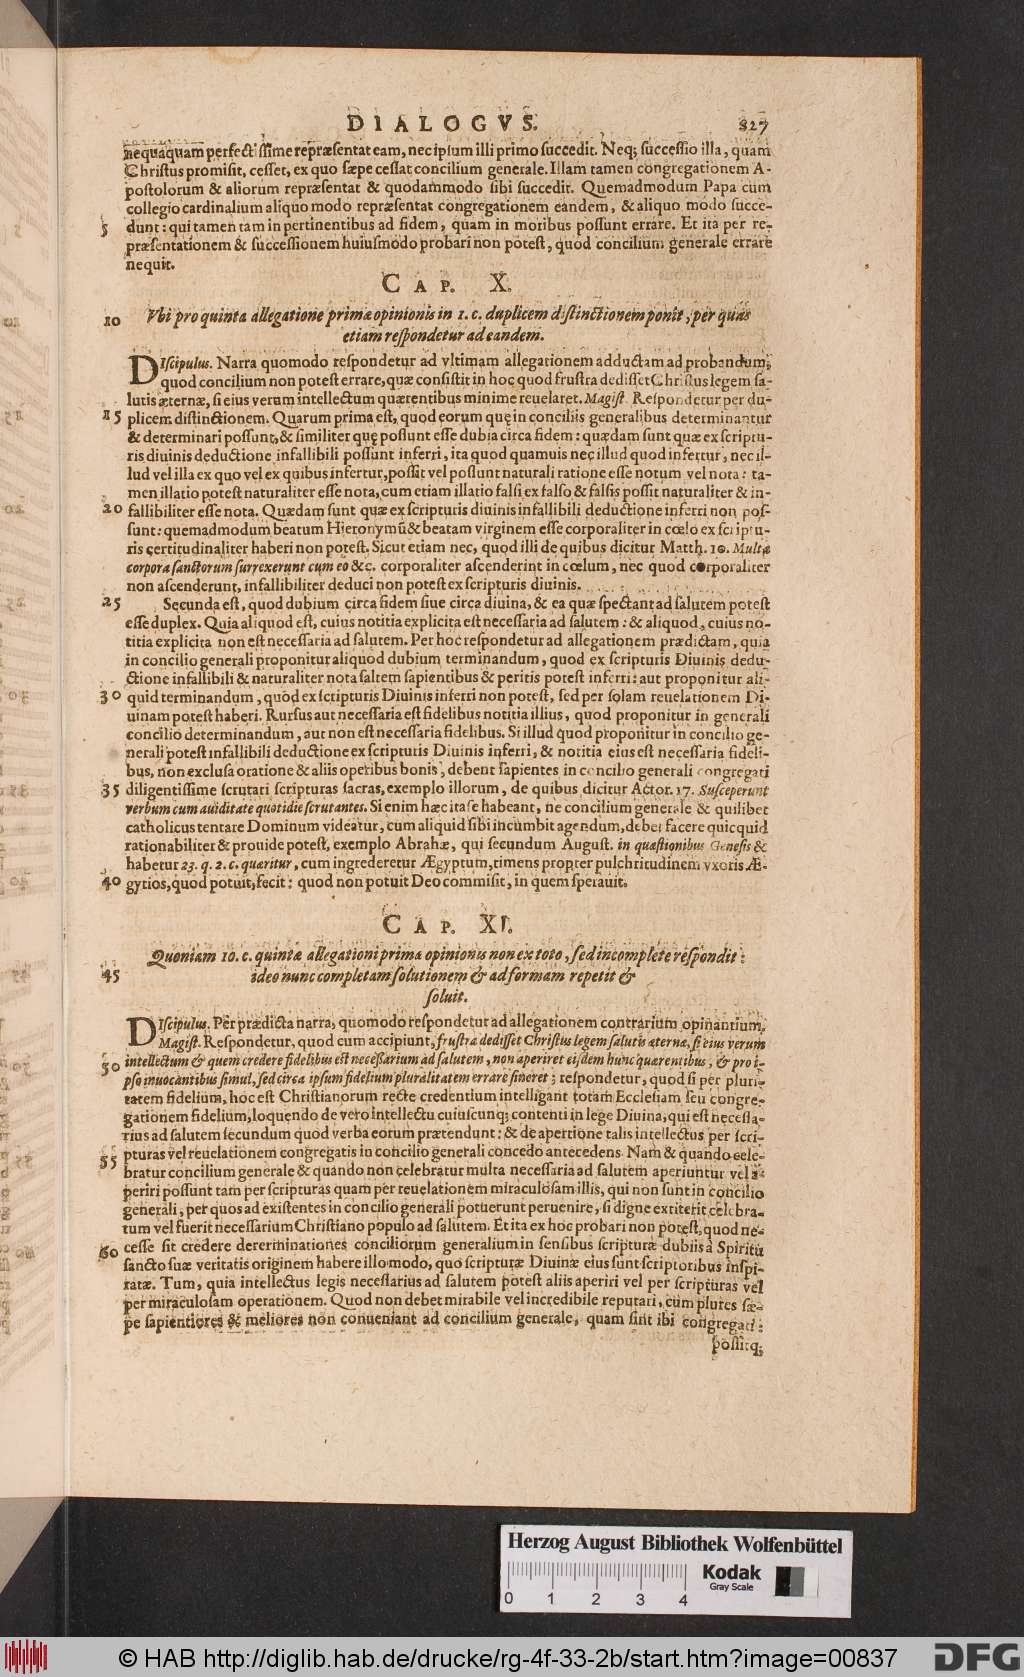 DIALOGVS. 827
nequaquam perfectissime repræsentat eam, nec ipsum illi primo succedit. Neq; successio illa, quam
Christus promisit, cesset, ex quo sæpe cessat concilium generale. Illam tamen congregationem A-
postolorum & aliorum repræsentat & quodammodo sibi succedit. Quemadmodum Papa cum
collegio cardinalium aliquo modo repræsentat congregationem eandem, & aliquo modo succe-
5 dunt: qui tamen tam in pertinentibus ad fidem, quam in moribus possunt errare. Et ita per re-
præsentationem & successionem huiusmodo probari non potest, quod concilium generale errare
nequit.
CAP. X.
10 Vbi pro quinta allegatione primæ opinionis in 1. c. duplicem distinctionem ponit, per quas
etiam respondetur ad eandem.
DIscipulus. Narra quomodo respondetur ad vltimam allegationem adductam ad probandum,
quod concilium non potest errare, quæ consistit in hoc quod frustra dedisset Christus legem sa-
lutis æternæ, si eius verum intellectum quærentibus minime reuelaret. Magist. Respondetur per du-
15 plicem distinctionem. Quarum prima est, quod eorum quę in conciliis generalibus determinantur
& determinari possunt, & similiter quę possunt esse dubia circa fidem: quædam sunt quæ ex scriptu-
ris diuinis deductione infallibili possunt inferri, ita quod quamuis nec illud quod infertur, nec il-
lud vel illa ex quo vel ex quibus infertur, possit vel possunt naturali ratione esse notum vel nota: ta-
men illatio potest naturaliter esse nota, cum etiam illatio falsi ex falso & falsis possit naturaliter & in-
20 fallibiliter esse nota. Quædam sunt quæ ex scripturis diuinis infallibili deductione inferri non pos-
sunt: quemadmodum beatum Hieronymũ & beatam virginem esse corporaliter in cœlo ex scriptu-
ris certitudinaliter haberi non potest. Sicut etiam nec, quod illi de quibus dicitur Matth. 10. Multa
corpora sanctorum surrexerunt cum eo &c. corporaliter ascenderint in cœlum, nec quod corporaliter
non ascenderunt, infallibiliter deduci non potest ex scripturis diuinis.
25 Secunda est, quod dubium circa fidem siue circa diuina, & ea quæ spectant ad salutem potest
esse duplex. Quia aliquod est, cuius notitia explicita est necessaria ad salutem: & aliquod, cuius no-
titia explicita non est necessaria ad salutem. Per hoc respondetur ad allegationem prædictam, quia
in concilio generali proponitur aliquod dubium terminandum, quod ex scripturis Diuinis dedu-
ctione infallibili & naturaliter nota saltem sapientibus & peritis potest inferri: aut proponitur ali-
30 quid terminandum, quod ex scripturis Diuinis inferri non potest, sed per solam reuelationem Di-
uinam potest haberi. Rursus aut necessaria est fidelibus notitia illius, quod proponitur in generali
concilio determinandum, aut non est necessaria fidelibus. Si illud quod proponitur in concilio ge-
nerali potest infallibili deductione ex scripturis Diuinis inferri, & notitia eius est necessaria fideli-
bus, non exclusa oratione & aliis operibus bonis, debent sapientes in concilio generali congregati
35 diligentissime scrutari scripturas sacras, exemplo illorum, de quibus dicitur Actor. 17. Susceperunt
verbum cum auiditate quotidie scrutantes. Si enim hæc ita se habeant, ne concilium generale & quilibet
catholicus tentare Dominum videatur, cum aliquid sibi incumbit agendum, debet facere quicquid
rationabiliter & prouide potest, exemplo Abrahæ, qui secundum August. in quæstionibus Genesis &
habetur 23. q. 2. c. quæritur, cum ingrederetur Ægyptum, timens propter pulchritudinem vxoris Æ-
40 gytios, quod potuit, fecit: quod non potuit Deo commisit, in quem sperauit.
CAP. XI.
Quoniam 10. c. quintæ allegationi prima opinionis non ex toto, sed incomplete respondit:
45 ideo nunc completam solutionem & ad formam repetit &
soluit.
DIscipulus. Per prædicta narra, quomodo respondetur ad allegationem contrarium opinantium.
Magist. Respondetur, quod cum accipiunt, frustra dedisset Christus legem salutis æternæ, si eius verum
50 intellectum & quem credere fidelibus est necessarium ad salutem, non aperiret eisdem hunc quærentibus, & pro i-
pso inuocantibus simul, sed circa ipsum fidelium pluralitatem errare sineret; respondetur, quod si per pluri-
tatem fidelium, hoc est Christianorum recte credentium intelligant totam Ecclesiam seu congre-
gationem fidelium, loquendo de vero intellectu cuiuscunq; contenti in lege Diuina, qui est necessa-
rius ad salutem secundum quod verba eorum prætendunt: & de apertione talis intellectus per scri-
55 pturas vel reuelationem congregatis in concilio generali concedo antecedens. Nam & quando cele-
bratur concilium generale & quando non celebratur multa necessaria ad salutem aperiuntur vel a-
periri possunt tam per scripturas quam per reuelationem miraculosam illis, qui non sunt in concilio
generali, per quos ad existentes in concilio generali potuerunt peruenire, si digne extiterit celebra-
tum vel fuerit necessarium Christiano populo ad salutem. Et ita ex hoc probari non potest, quod ne-
60 cesse sit credere dererminationes conciliorum generalium in sensibus scripturæ dubiis à Spiritu
sancto suæ veritatis originem habere illo modo, quo scripturæ Diuinæ eius sunt scriptoribus inspi-
ratæ. Tum, quia intellectus legis necessarius ad salutem potest aliis aperiri vel per scripturas vel
per miraculosam operationem. Quod non debet mirabile vel incredibile reputari, cum plures sæ-
pe sapientiores & meliores non conueniant ad concilium generale, quam sint ibi congregati:
possitq;
Herzog August Bibliothek Wolfenbüttel
Kodak
Gray Scale
0 1 2 3 4
© HAB http://diglib.hab.de/drucke/rg-4f-33-2b/start.htm?image=00837
DFG